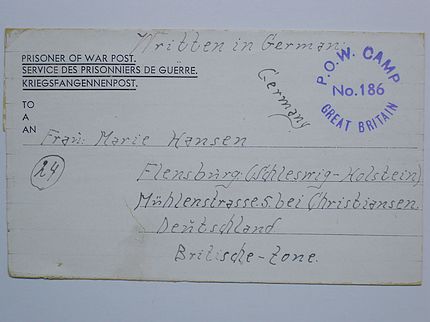 Written in German.
PRISONER OF WAR POST.
SERVICE DES PRISONNIERS DE GUERRE.
KRIEGSFANGENNENPOST.
Germany
P.O.W. CAMP
No. 186
GREAT BRITAIN
TO
A
AN
Frau: Marie Hansen
24
Flensburg (Schleswig-Holstein)
Mühlenstrasse 5 bei Christiansen
Deutschland
Britische-Zone.